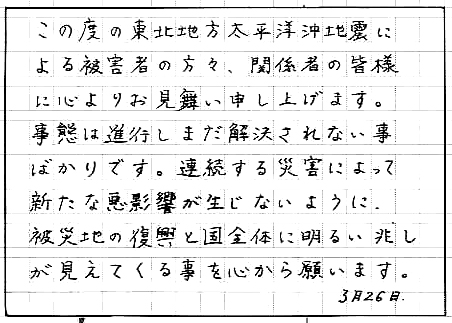 この度の東北地方太平洋沖地震に
よる被害者の方々、関係者の皆様
に心よりお見舞い申し上げます。
事態は進行しまだ解決されない事
ばかりです。連続する災害によって
新たな悪影響が生じないように、
被災地の復興と国全体に明るい兆し
が見えてくる事を心から願います。
3月26日.